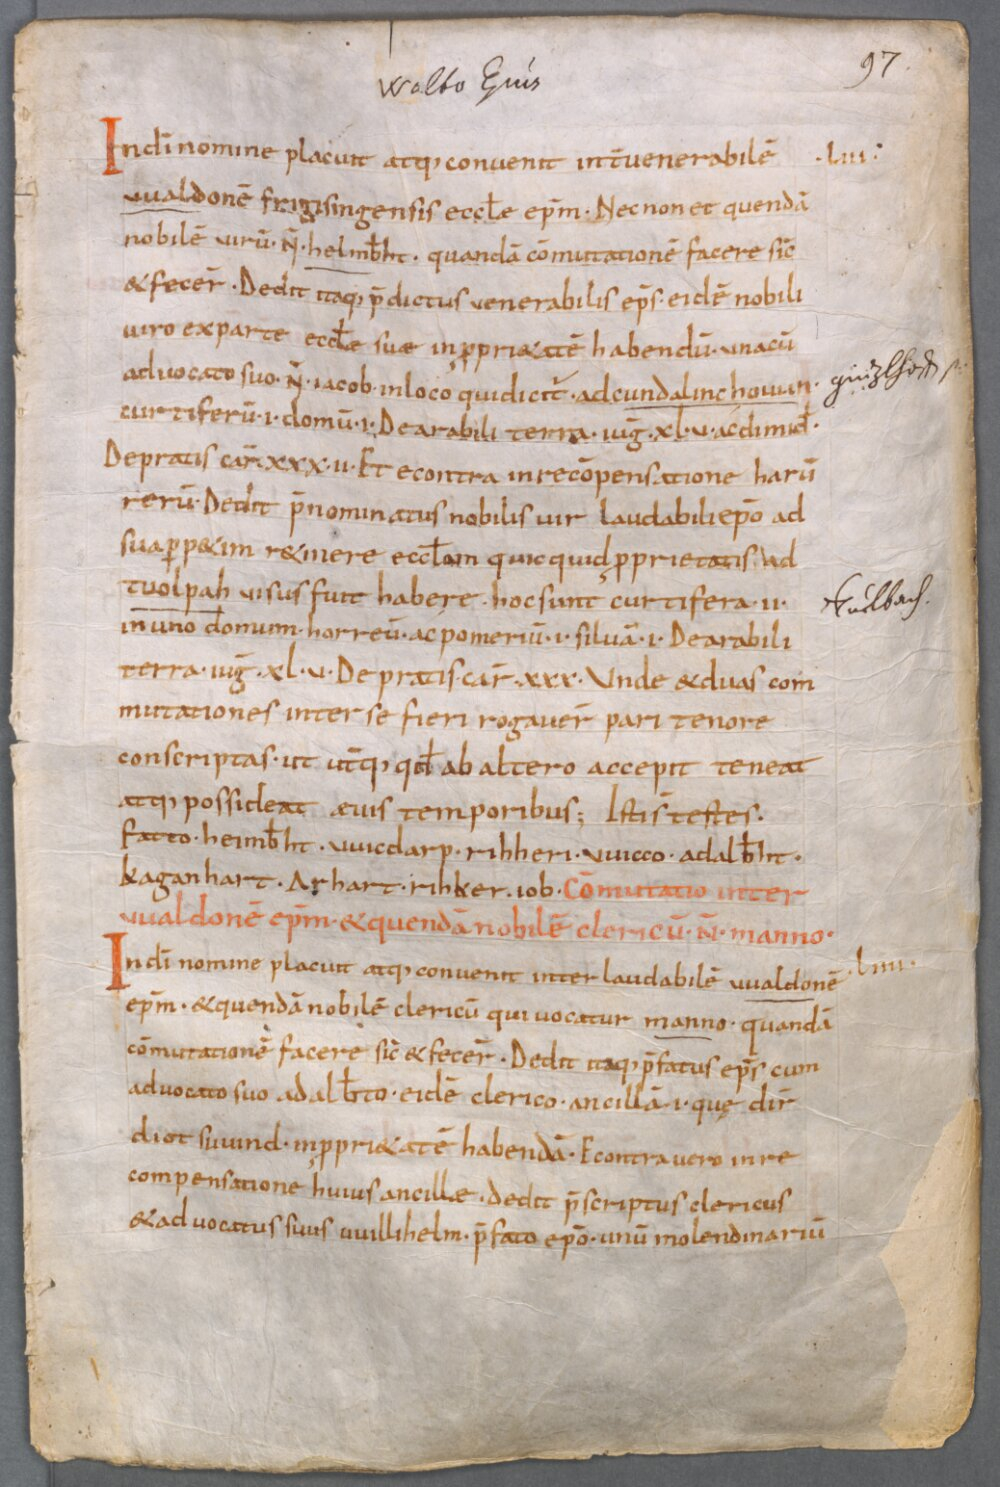 Walbo Ep̄us
97
In dī nomine placuit atq; convenit int̄ venerabilē ·liii·
vvaldonē frigisingensis ecclꝭ ep̄m · Necnon et quendā
nobilē virū · N̄ · helmb̄ht · quandā cōmutationē facere sic̄
& fecer̄ · Dedit itaq; p̄dictus venerabilis ep̄s eidē nobili
viro ex parte eccłæ suæ in ꝓpri&atē habendū · una cū
advocato suo · N̄ · iacob · in loco qui dicit̄ · ad cundalinchouun ·
curtiferū · i · domū · i · De arabili terra · iug̃ · xl · v · ac dimid̄ ·
De pratis car̄ · xxx · ii · Et econtra in recōpensatione harū
rerū · Dedit p̄nominatus nobilis vir laudabili ep̄o ad
suā ꝑp&im r&inere eccłam quicquid ꝓprietatis ad
tuolpah visus fuit habere · hoc sunt curtifera · ii ·
tuilbach.
in uno domum · horreū · ac pomeriū · i · silvā · i · De arabili
terra · iug̃ · xl · v · De pratis · car̄ · xxx · Unde & duas com
mutationes inter se fieri rogaver̄ pari tenore
conscriptas · ut ut̄q; qd̄ ab altero accepit teneat
atq; possideat ævis temporibus; Isti s̄ testes ·
fatto · heimb̄ht · vvicdarp · rihheri · vvicco · adalb̄ht ·
kaganhart · Arhart · rihker · iob · Cōmutatio inter
vvaldonē ep̄m · & quendā nobilē clericū · N̄ · manno ·
In dī nomine placuit atq; convenit inter laudabilē vvaldonē ·liiii·
ep̄m · & quendā nobilē clericū qui vocatur manno · quandā
cōmutationē facere sic̄ & fecer̄ · Dedit itaq; p̄fatus ep̄s cum
advocato suo adalb̄to · eidē clerico · ancillā · i · quę dir̄
diot suuind · in ꝓpri&atē habendā · Econtra vero in re
compensatione huius ancillæ · dedit p̄scriptus clericus
& advocatus suus vvillihelm · p̄fato ep̄o · unū molendinariū